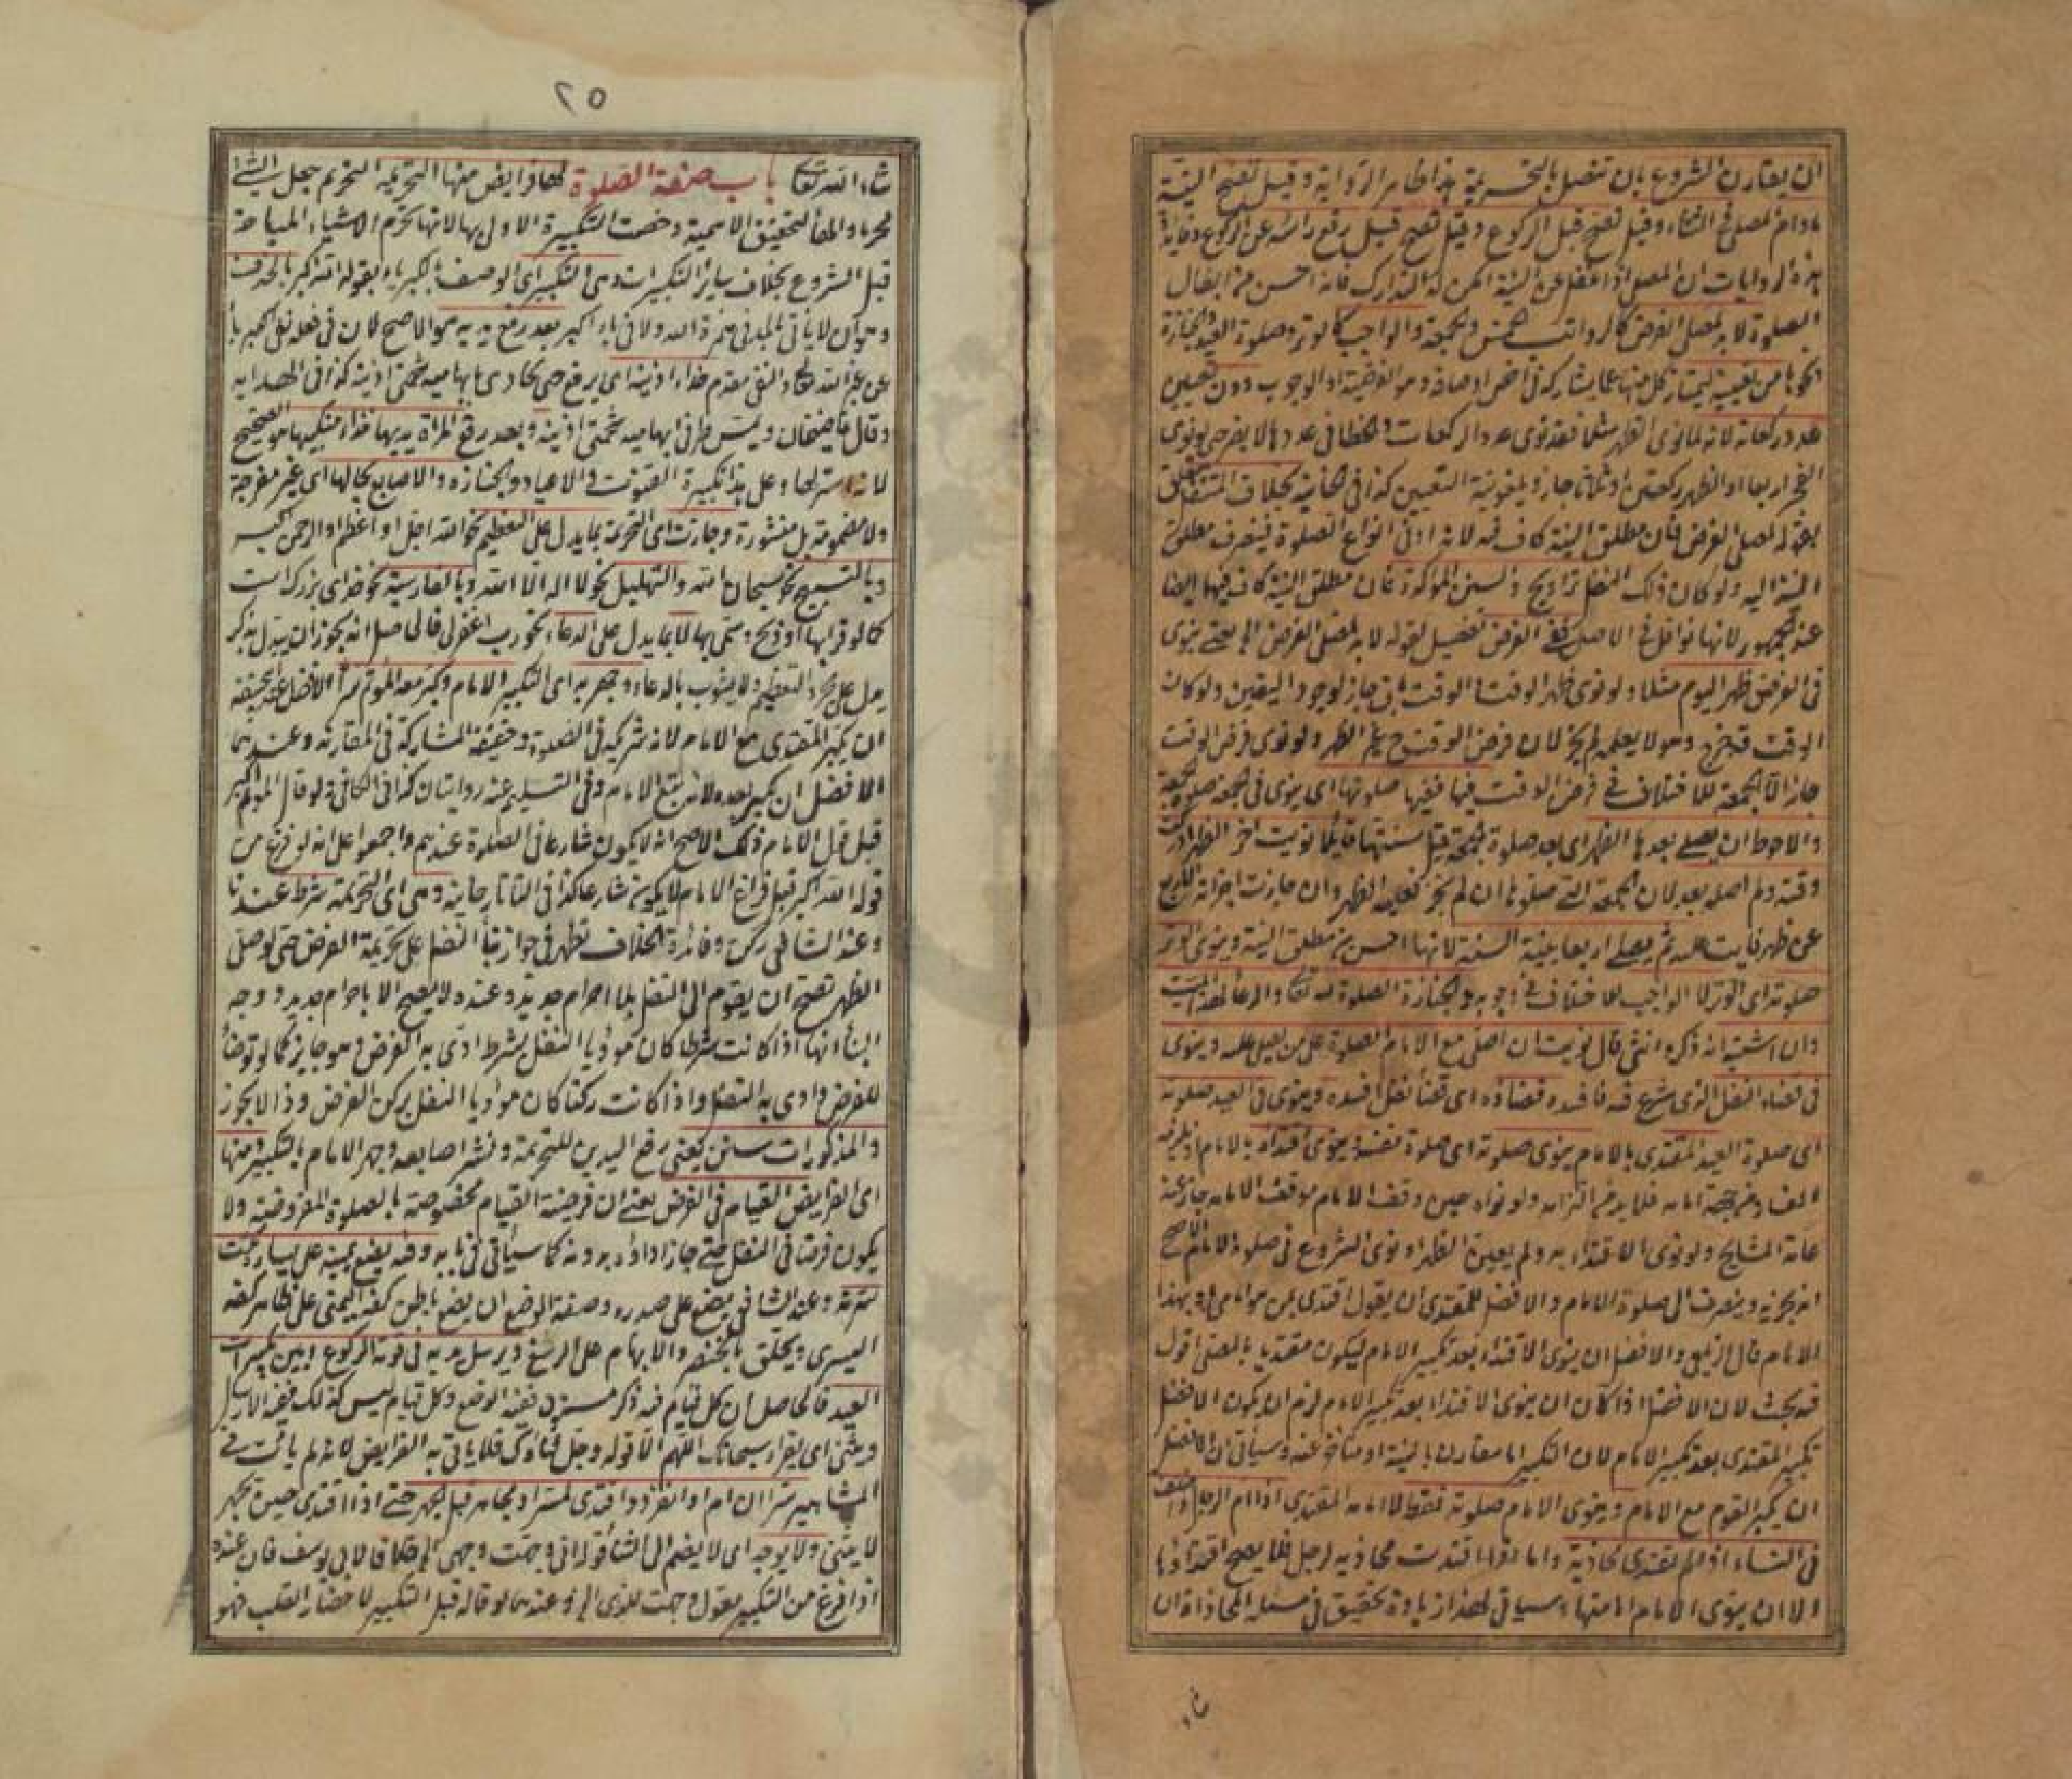 ان يقارن الشروع بان تتصل بالتحريمة هذا ظاهر الرواية وقيل تصح النية
مادام المصلي في الثناء وقيل تصح قبل الركوع وقيل تصح قبل رفع رأسه عن الركوع وفائدة
هذه الروايات ان المصلي اذا غفل عن النية امكن له التدارك فانه احسن من ابطال
الصلوة لا بد لمصلي الفرض كالرواتب الخمس والجمعة والواجب كالوتر وصلوة العيد والجنازة
ونحوها من تعيينه ليمتاز كل منها عما يشاركه في اخص اوصافه وهو الفرضية او الوجوب دون تعيين
عدد ركعاته لانه لما نوى الظهر مثلا فقد نوى عدد الركعات والخطأ في عددها لا يضر حتى لو نوى
الفجر اربعا او الظهر ركعتين او ثلاثا جاز ويلغو نية التعيين كذا في الخانية بخلاف المتنفل متعلق
بقوله لمصلي الفرض فان مطلق النية كاف فيه لانه ادنى انواع الصلوة فينصرف مطلق
النية اليه ولو كان ذلك النفل تراويح والسنن المؤكدة فان مطلق النية كاف فيها ايضا
عند الجمهور لانها نوافل في الاصل ففي الفرض تفصيل لقوله لا بد لمصلي الفرض الى يعني ينوي
في الفرض ظهر اليوم مثلا ولو نوى ظهر الوقت والوقت باق جاز لوجود اليقين ولو كان
الوقت قد خرج وهو لا يعلمه لم يجز لان فرض الوقت ح غير الظهر ولو نوى فرض الوقت
جاز الا الجمعة للاختلاف في فرض الوقت فيها ففيها صلوتها اى ينوي في الجمعة صلوة الجمعة
والاحوط ان يصلي بعدها الظهر اى بعد صلوة الجمعة قبل سنتها قائلا نويت اخر الظهر ادركت
وقته ولم اصله بعد لان الجمعة التي صلوها ان لم يجز فعليه الظهر وان جازت اجزأته الاربع
عن ظهر فايت عليه ثم يصلي اربعا بنية السنة لانها احسن من مطلق النية وينوي في الوتر
صلوته اى الوتر لا الواجب للاختلاف في وجوبه وفي الجنازة الصلوة لله تعالى والدعاء لهذا الميت
وان اشتبه انه ذكر او انثى قال نويت ان اصلي مع الامام الصلوة على من يصلي عليه وينوي
في قضاء النفل الذي شرع فيه فافسده قضاءه اى قضاء نفل افسده وينوي في العيد صلوته
اى صلوة العيد المقتدي بالامام ينوي صلوته اى صلوة نفسه وينوي اقتداءه بالامام اذ يلزمه
الفساد من جهة امامه فلا بد من التزامه ولو نواه حين وقف الامام موقف الامامة جاز عند
عامة المشايخ ولو نوى الاقتداء به ولم يعين الظهر او نوى الشروع في صلوة الامام الاصح
انه يجزيه وينصرف الى صلوة الامام والافضل للمقتدي ان يقول اقتدى بمن هو امامي او بهذا
الامام قال الزيلعي والافضل ان ينوي الاقتداء بعد تكبير الامام ليكون مقتديا بالمصلي اقول
فيه بحث لان الافضل اذا كان ان ينوي الاقتداء بعد تكبير الامام لزم ان يكون الافضل
تكبير المقتدي بعد تكبير الامام لان التكبير اما مقارن بالنية او متأخر عنه وسيأتي ان الافضل
ان يكبر القوم مع الامام وينوي الامام صلوته فقط لا امامة المقتدي اذا ام الرجال
في النساء اذا لم تقتدى محاذية واما اذا اقتدت محاذية لرجل فلا يصح اقتداؤها
الا ان ينوي الامام امامتها وسيأتي لهذا زيادة تحقيق في مسئلة المحاذاة ان
شاء
٢٥
شاء الله تعالى باب صفة الصلوة لها فرايض منها التحريمة التحريم جعل الشيء
محرما والهاء لتحقيق الاسمية وخصت التكبيرة الاولى بها لانها تحرم الاشياء المباحة
قبل الشروع بخلاف سائر التكبيرات وهي التكبير اى الوصف بالكبرياء بقوله الله اكبر بالحذف
وهو ان لا يأتي بالمد في همزة الله ولا في باء اكبر بعد رفع يديه هو الاصح لان في فعله نفي الكبرياء
عن غير الله تعالى والنفي مقدم حذاء اذنيه اى يرفع حتى يحاذي بابهاميه شحمتي اذنيه كذا في الهداية
وقال قاضيخان ويمس طرفي ابهاميه شحمتي اذنيه وبعد رفع المرأة يديها حذاء منكبيها هو الصحيح
لانه استر لها وعلى هذا تكبيرة القنوت والاعياد والجنازة والاصابع بحالها اى غير مفرجة
ولا مضمومة بل منشورة وجازت اى التحريمة بما يدل على التعظيم نحو الله اجل او اعظم او الرحمن اكبر
وبالتسبيح نحو سبحان الله والتهليل نحو لا اله الا الله وبالفارسية نحو خداى بزرك است
كما لو قرأ بها او ذبح وسمى بها لا بما يدل على الدعاء نحو رب اغفر لي فالحاصل انه يجوز ان يبدل بذكر
يدل على مجرد التعظيم ولا يشوب بالدعاء وجهر به اى التكبير الامام وكبر معه المؤتم سرا الافضل عند ابي حنيفة
ان يكبر المقتدى مع الامام لانه شريكه في الصلوة وحقيقة المشاركة في المقارنة وعندهما
الافضل ان يكبر بعده لانه تبع الامام وفي التسليم عنه روايتان كذا في الكافي فلو قال المؤتم الله اكبر
قبل قول الامام ذلك الاصح انه لا يكون شارعا في الصلوة عندهم واجمعوا على انه لو فرغ من
قوله الله اكبر قبل فراغ الامام لا يكون شارعا كذا في التاتارخانية وهي اى التحريمة شرط عندنا
وعند الشافعي ركن وفائدة الخلاف تظهر في جواز بناء النفل على تحريمة الفرض حتى لو صلى
الظهر تصح ان يقوم الى النفل بلا احرام جديد وعنده لا يصح الا باحرام جديد ووجه
البناء انها اذا كانت شرطا كان مؤديا النفل بشرط ادى به الفرض وهو جايز كما لو توضأ
للفرض وادى به النفل واذا كانت ركنا كان مؤديا النفل بركن الفرض وذا لا يجوز
والمذكورات سنن يعني رفع اليدين للتحريمة ونشر اصابعه وجهر الامام بالتكبير ومنها
اى الفرايض القيام في الفرض يعني ان فرضية القيام مخصوصة بالصلوة المفروضة ولا
يكون فرضا في النفل حتى جاز اداؤه بدونه كما سيأتي في بابه وفيه يضع يمينه على يساره تحت
سرته وعند الشافعي يضع على صدره وصفة الوضع ان يضع باطن كفه اليمنى على ظاهر كفه
اليسرى ويحلق بالخنصر والابهام على الرسغ ويرسل يديه في قومة الركوع وبين تكبيرات
العيد فالحاصل ان كل قيام فيه ذكر مسنون ففيه الوضع وكل قيام ليس كذلك ففيه الارسال
ويثني اى يقرأ سبحانك اللهم الا قوله وجل ثناؤك فلا يأتي به الفرايض لانه لم يأت في
المشاهير سرا ان ام او انفرد واقتدى لمسر او لجاهر قبل الجهر حتى اذا اقتدى حين يجهر
لا يثني ولا يوجه اى لا يضم الى الثناء قوله اني وجهت وجهي الى خلافا لابي يوسف فان عنده
اذا فرغ من التكبير يقول وجهت للذي الخ وعندهما لو قاله قبل التكبير لاحضار القلب فهو